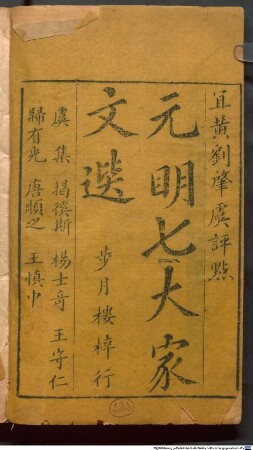 宜黃劉肇虞評點
元明七大家
文選
步月樓梓行
虞集 揭傒斯 楊士奇 王守仁
歸有光 唐順之 王慎中